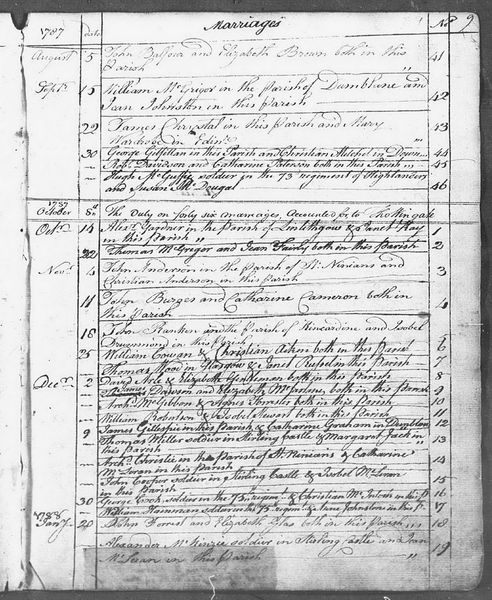 1787 date Marriages No 9
August 5 John and Elizabeth Brown both in this 41
Parish
Septr 15 William McGrigor in the Parish of Dumblane and
Jean Johnston in this Parish 42
22 James Chrystal in this Parish and Mary 43
in Edinr
30 George Gilfillan in this Parish and Christian in 44
Robt Davidson and Catharine Paterson both in this Parish 45
Hugh McGuffie soldier in the 73 regiment of Highlanders
and Susan McDougal 46
1787
October 8 The duty on forty six marriages Accounted for to
Octr 14 Alexr Gardner in the Parish of Linlithgow & Janet Hay 1
in this Parish
22 Thomas McGregor and Jean Fairly both in this Parish 2
Novr 4 John Anderson in the Parish of St Ninians and 3
Christian Anderson in this Parish
11 John Burges and Catharine Cameron both in
this Parish 4
18 John Ranken in the Parish of Kincardine and Isobel
Drummond in this Parish
25 William Cowan & Christian Aiken both in this Parish 6
Thomas in Glasgow & Janet in this Parish 7
Decr 2 David & Elizabeth both in this Parish 8
James Dawson and Elizabeth both in this Parish 9
Archd McGibbon & Agnes Forrester both in this Parish 10
William Robertson & Isobel Stewart both in this Parish 11
9 James Gillespie in this Parish & Catharine Graham in Dumblane 12
Thomas Miller soldier in Stirling Castle & Margaret Jack in 13
this Parish
Archd Christie in the Parish of St Ninians & Catharine 14
McLaran in this Parish
John Cooper soldier in Stirling Castle & Isobel McLaran 15
in this Parish
30 George Cook soldier in the 73 regimt & Christian McIntosh in this P. 16
William soldier in the 73 regt & Anne Johnston in this P. 17
1788
Jany 20 John Forrest and Elizabeth Glas both in this Parish 18
Alexander McKenzie soldier in Stirling Castle and Jean 19
McLaran in this Parish